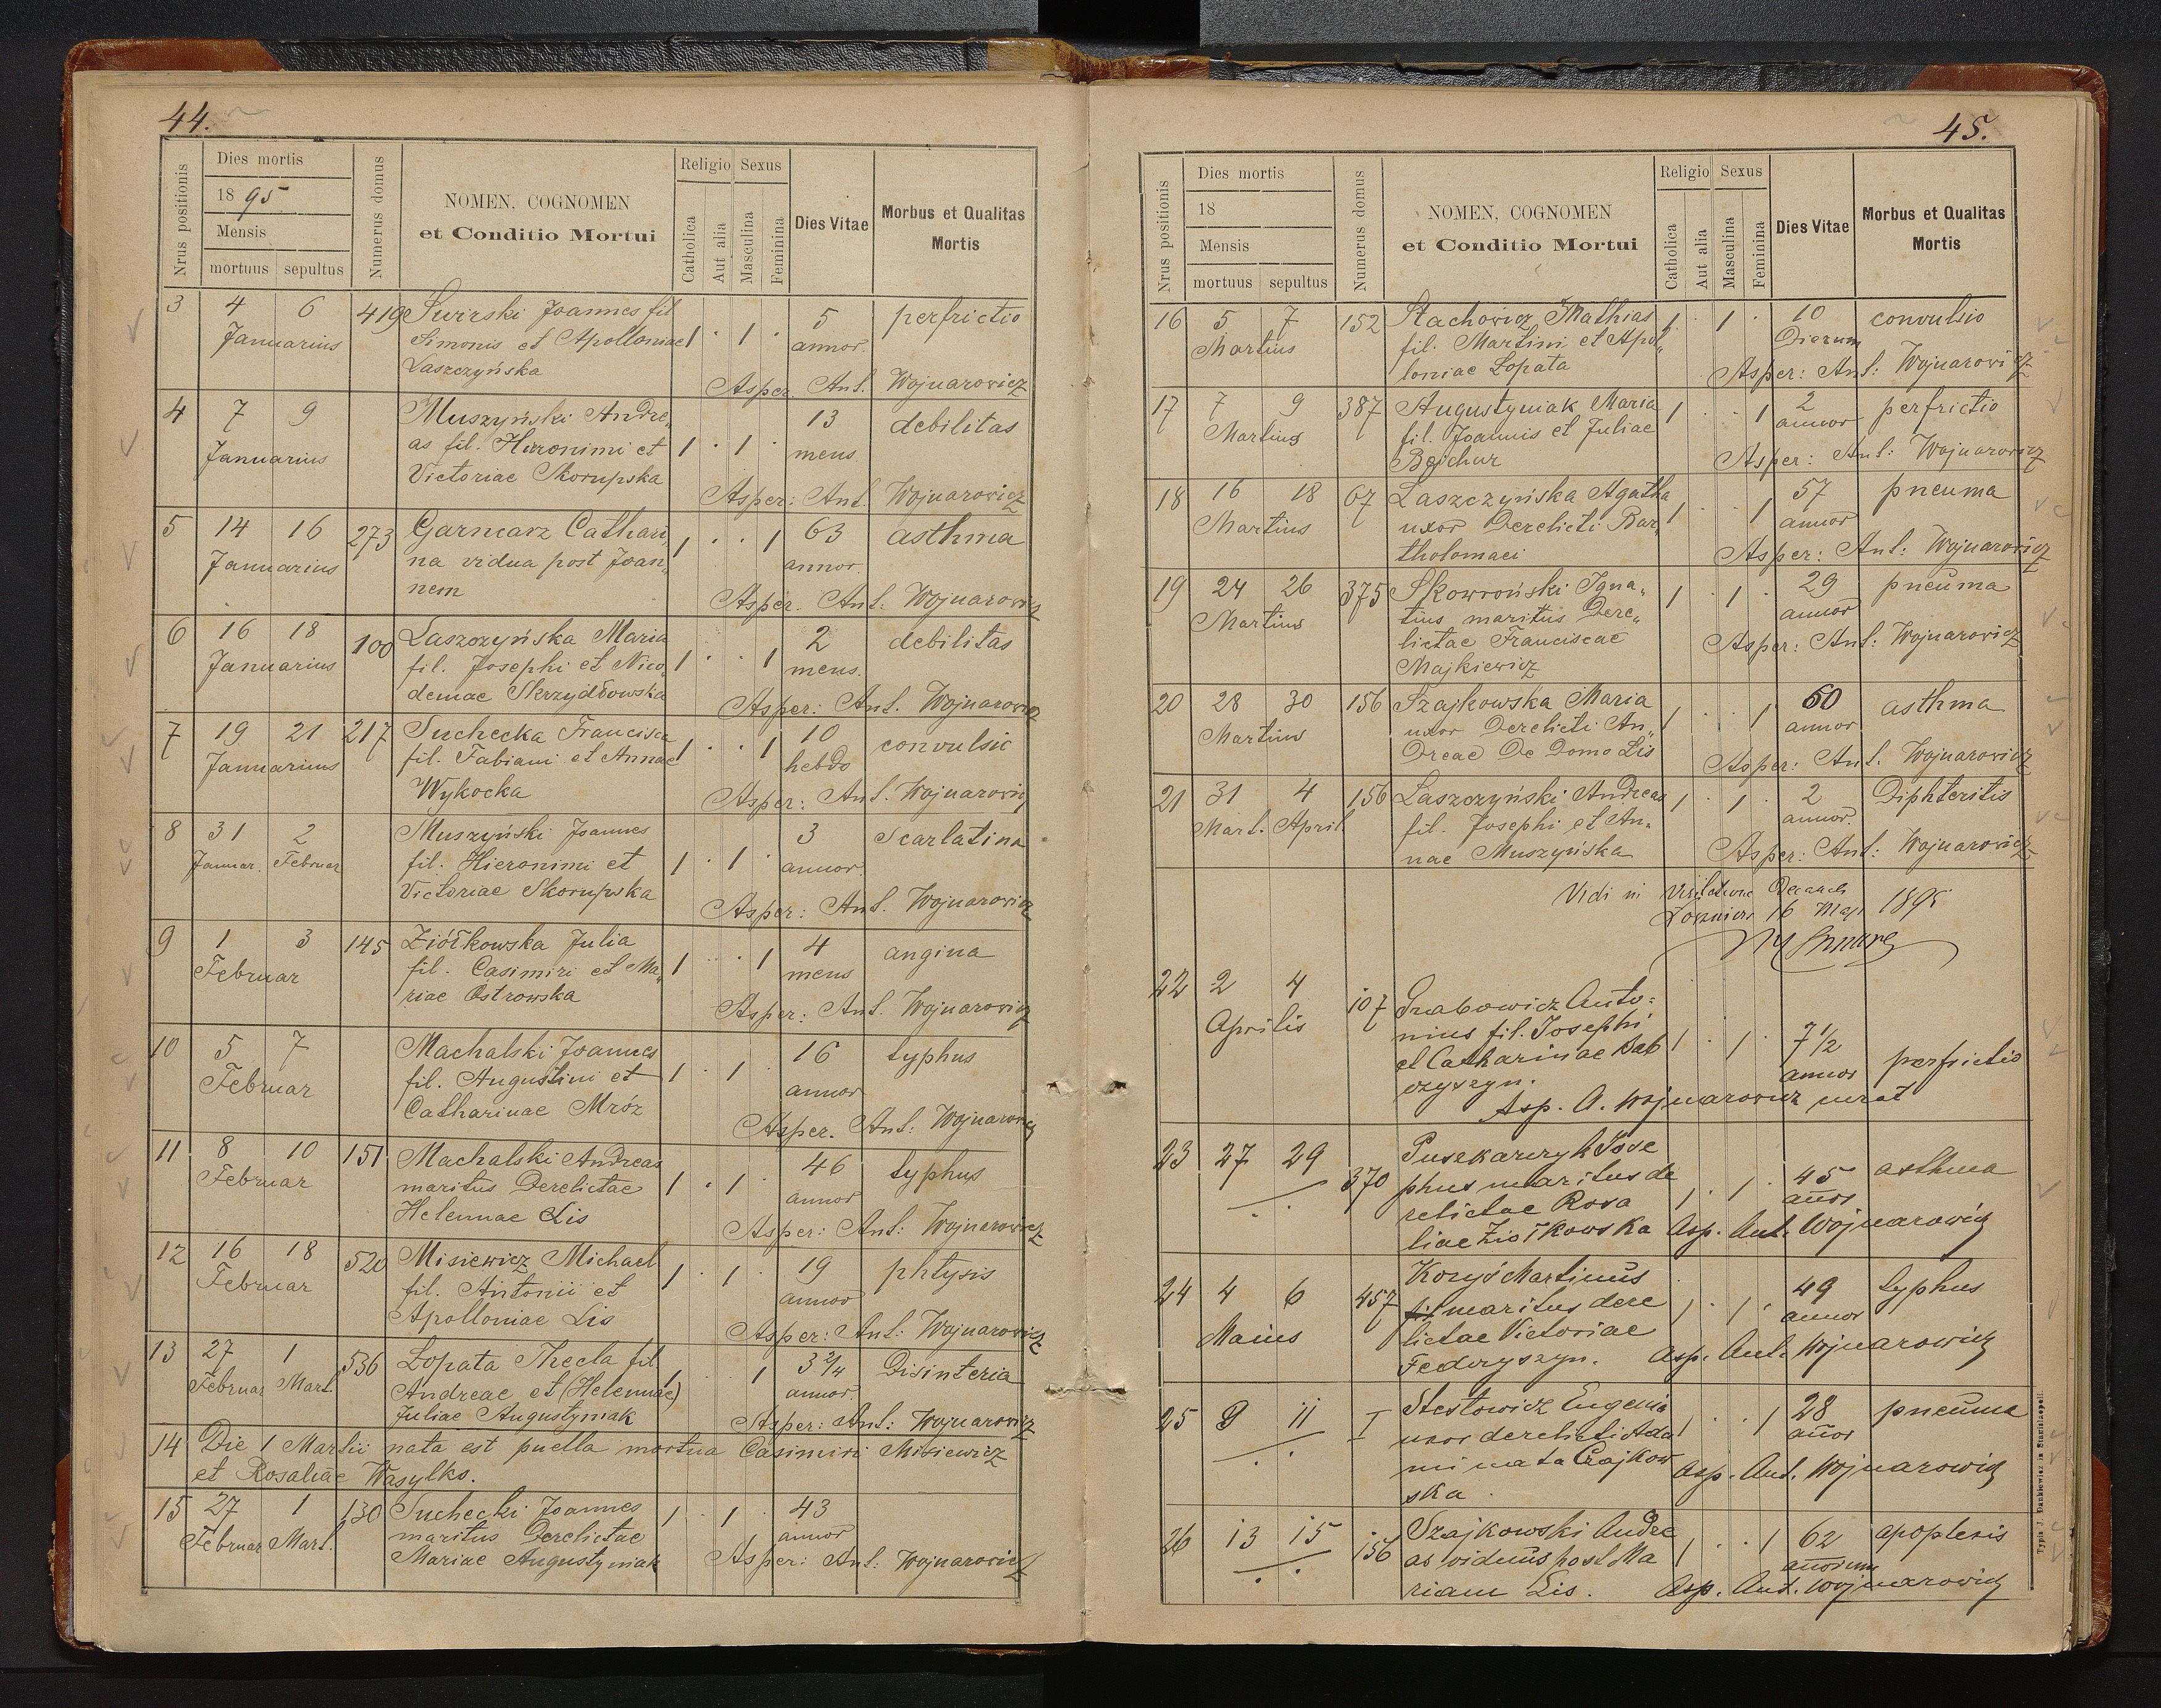 44.
Nrus positionis
Dies mortis
1895
Mensis
mortuus sepultus
Numerus domus
NOMEN, COGNOMEN
et Conditio Mortui
Religio Sexus
Catholica
Aut alia
Masculina
Feminina
Dies Vitae
Morbus et Qualitas
Mortis
3 4 6 419 Swirski Joannes fil 1 · 1 · 5 perfrictio
Januarius Simonis et Apolloniae annor.
Laszczyńska
Asper. Ant. Wojnarowicz
4 7 9 Muszyński Andre„ 13 debilitas
Januarius as fil. Hieronimi et 1 · 1 · mens.
Victoriae Skorupska
Asper: Ant. Wojnarowicz
5 14 16 273 Garncarz Cathari„ 1 · · 1 63 asthma
Januarius na vidua post Joan„ annor.
nem
Asper. Ant: Wojnarowicz
6 16 18 100 Laszczyńska Maria 2 debilitas
Januarius fil. Josephi et Nico„ 1 · · 1 mens.
demae Skrzydłowska
Asper: Ant. Wojnarowicz
7 19 21 217 Suchecka Francisca 1 · · 1 10 convulsio
Januarius fil. Fabiani et Annae hebdo
Wykocka
Asper: Ant. Wojnarowicz
8 31 2 Muszyński Joannes 3 Scarlatina
Januar. Februar fil. Hieronimi et 1 · 1 · annor.
Victoriae Skorupska
Asper: Ant. Wojnarowicz
9 1 3 145 Ziółkowska Julia 4 angina
Februar fil. Casimiri et Ma„ 1 · · 1 mens
riae Ostrowska
Asper: Ant. Wojnarowicz
10 5 7 Machalski Joannes 16 typhus
Februar fil. Augustini et 1 · 1 · annor
Catharinae Mróz
Asper. Ant: Wojnarowicz
11 8 10 151 Machalski Andreas 46 typhus
Februar maritus Derelictae 1 · 1 · annor
Helennae Lis
Asper: Ant: Wojnarowicz
12 16 18 520 Misiewicz Michael 19 phtysis
Februar fil. Antonii et 1 · 1 · annor
Apolloniae Lis
Asper: Ant: Wojnarowicz
13 27 1 536 Łopata Thecla fil. 1 · · 1 3 3/4 Disinteria
Februar Mart. Andreae et (Helennae) annor.
Juliae Augustyniak
Asper: Ant: Wojnarowicz
14 Die 1 Martii nata est puella mortua Casimiri Misiewicz
et Rosaliae Wasylko.
15 27 1 130 Suchecki Joannes 1 · 1 · 43
Februar Mart. maritus Derelictae annor
Mariae Augustyniak Asper: Ant: Wojnarowicz
45.
Nrus positionis
Dies mortis
18
Mensis
mortuus sepultus
Numerus domus
NOMEN, COGNOMEN
et Conditio Mortui
Religio Sexus
Catholica
Aut alia
Masculina
Feminina
Dies Vitae
Morbus et Qualitas
Mortis
16 5 7 152 Stachowicz Mathias 1 · 1 · 10 convulsio
Martius fil. Martini et Apol„ Dierum
loniae Łopata Asper: Ant: Wojnarowicz
17 7 9 387 Augustyniak Maria 1 · · 1 2 perfrictio
Martius fil. Joannis et Juliae annor
Bojchur Asper: Ant: Wojnarowicz
18 16 18 67 Laszczyńska Agatha 1 · · 1 57 pneuma
Martius uxor Derelicti Bar„ annor
tholomaei Asper: Ant: Wojnarowicz
19 24 26 375 Skowroński Igna„ 1 · 1 · 29 pneuma
Martius tius maritus Dere„ annor
lictae Franciscae Asper: Ant: Wojnarowicz
Majkiewicz
20 28 30 156 Szajkowska Maria 1 · · 1 60 asthma
Martius uxor Derelicti An„ annor
dreae De Domo Lis Asper: Ant. Wojnarowicz
21 31 4 156 Laszczyński Andreas 1 · 1 · 2 Diphteritis
Mart. April. fil. Josephi et An„ annor.
nae Muszyńska Asper: Ant: Wojnarowicz
Vidi in 16 1895
22 2 4 107 Grabowicz Anto:
Aprilis nius fil. Josephi 7 1/2
et Catharinae Bab 1 · 1 · annor perfrictio
czyszyn.
Asp. A. Wojnarowicz
23 27 29 370 Puszkarczyk Jose
phus maritus de 1 · 1 · 45 asthma
relictae Rosa annor
liae Ziółkowska Asp. Ant. Wojnarowicz
24 4 6 457 Kozyś Martinus 49 typhus
Maius fil maritus dere 1 · 1 · annor
lictae Victoriae
Fedoryszyn. Asp. Ant. Wojnarowicz
25 9 11 I Stestowicz Eugenia 28 pneuma
uxor derelicti Ada 1 · · 1 annor
mi nata Czajkow Asp. Ant. Wojnarowicz
ska.
26 13 15 156 Szajkowski Andre 1 · · 1 62 apoplexis
as viduus post Ma annorum
riam Lis. Asp. Ant. Wojnarowicz
Typis J. Dankiewicz in Stanislaopoli.